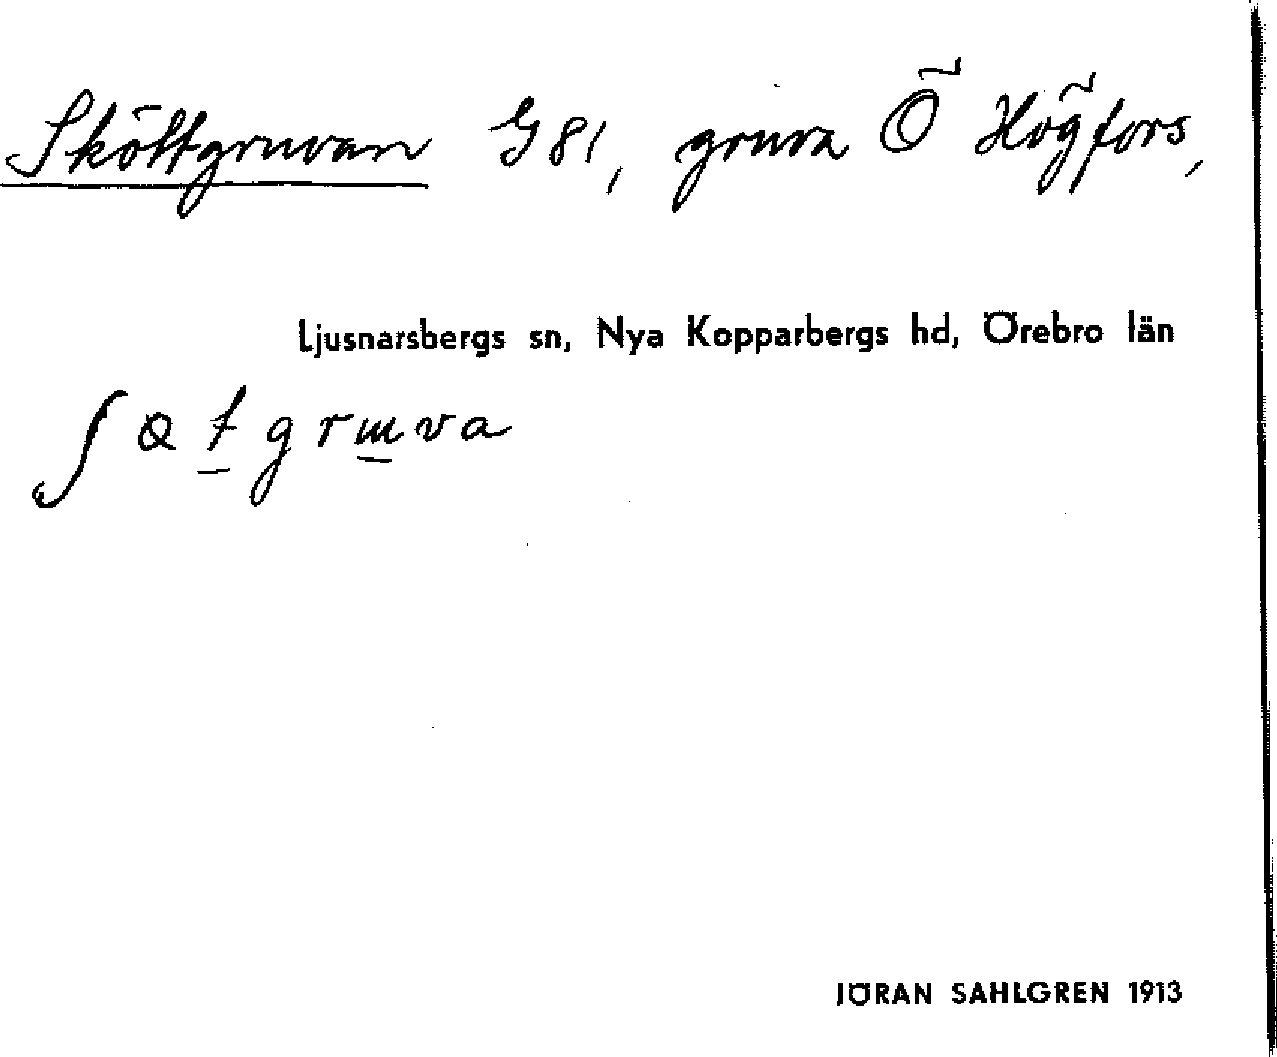 Sköttgruvan G81, gruva Ö Högfors,
Ljusnarsbergs sn, Nya Kopparbergs hd, Örebro län
JÖRAN SAHLGREN 1913